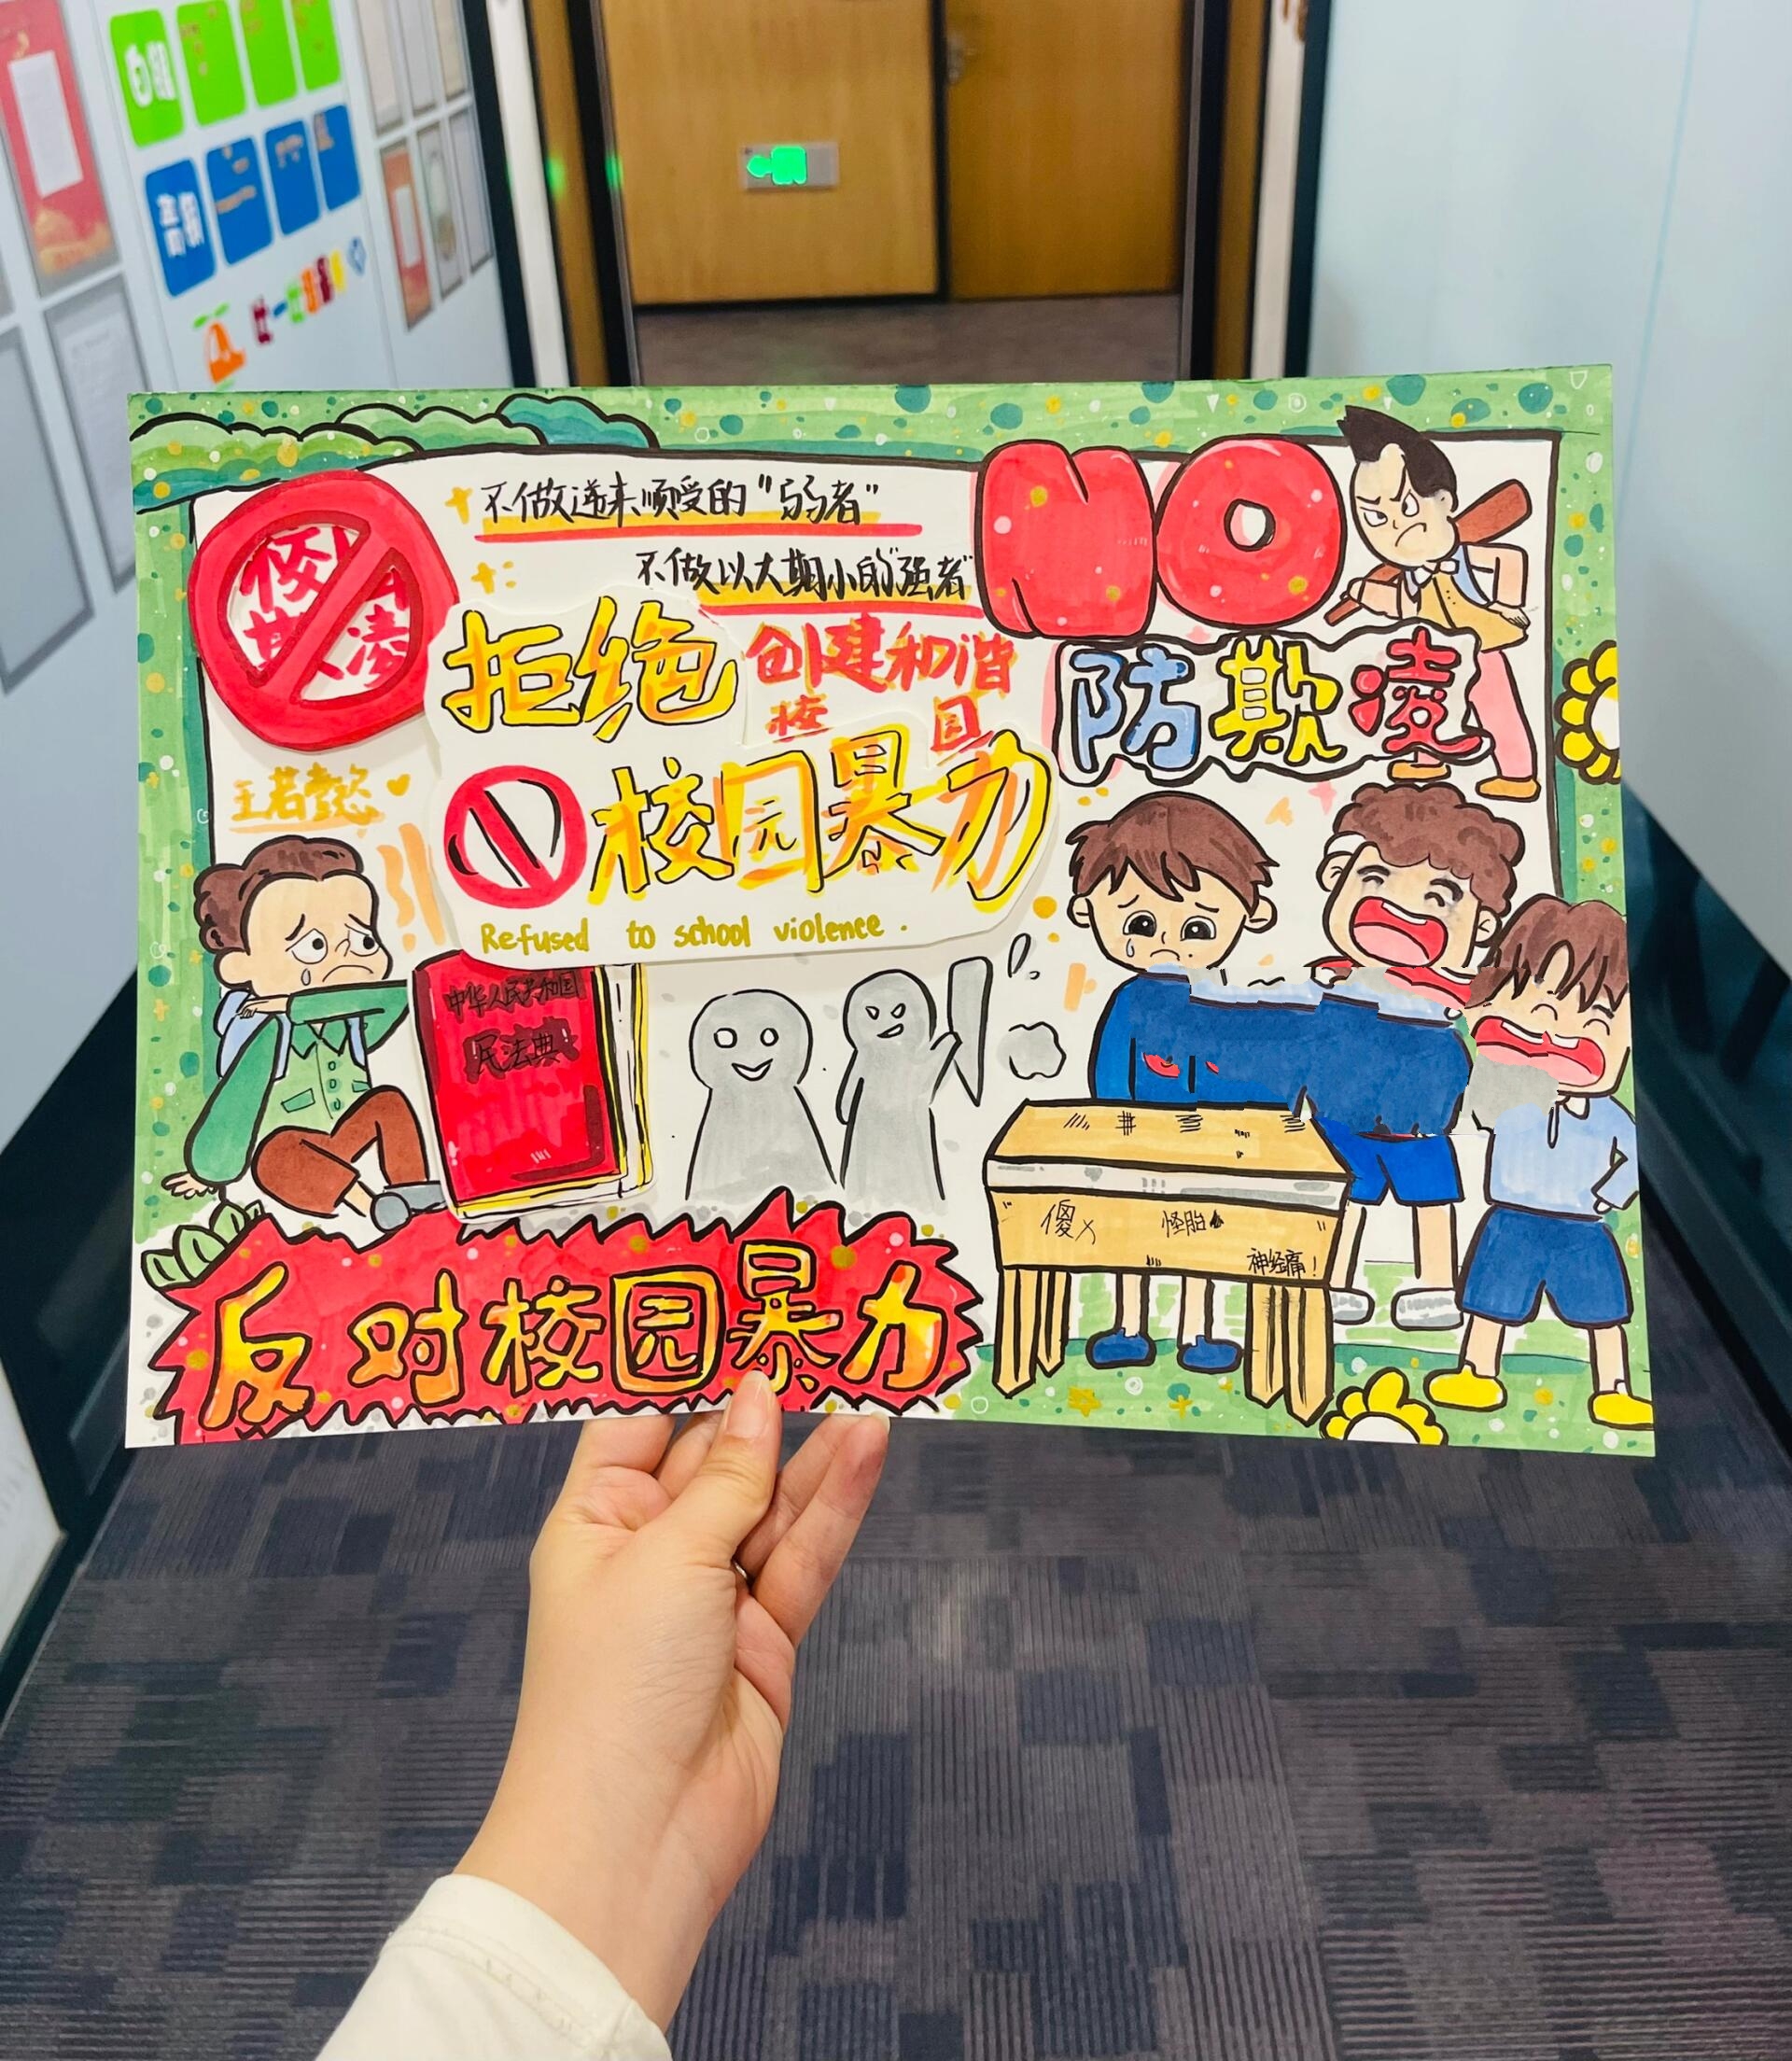 不做逆来顺受的"弱者"
不做以大期小的"强者"
NO
拒绝
创建和谐
校园
防欺凌
校园暴力
Refused to school violence.
中华人民共和国
民法典
傻
怪胎
神经病!
反对校园暴力